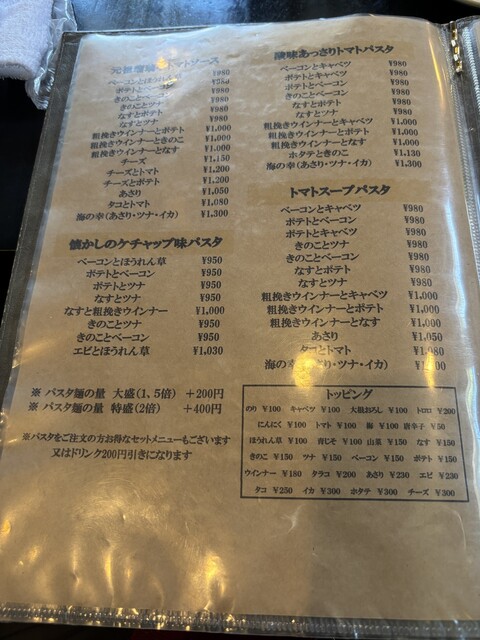 元祖濃味 トマトソース
ベーコンとほうれん草 ¥980
ポテトとベーコン ¥980
きのことベーコン ¥980
きのことツナ ¥980
なすとポテト ¥980
なすとツナ ¥980
粗挽きウインナーとポテト ¥1,000
粗挽きウインナーときのこ ¥1,000
粗挽きウインナーとなす ¥1,000
チーズ ¥1,150
チーズとトマト ¥1,200
チーズとポテト ¥1,200
あさり ¥1,050
タコとトマト ¥1,080
海の幸(あさり・ツナ・イカ) ¥1,300
懐かしのケチャップ味パスタ
ベーコンとほうれん草 ¥950
ポテトとベーコン ¥950
ポテトとツナ ¥950
なすとツナ ¥950
なすと粗挽きウインナー ¥1,000
きのことツナ ¥950
きのことベーコン ¥950
エビとほうれん草 ¥1,030
※ パスタ麺の量 大盛(1、5倍) +200円
※ パスタ麺の量 特盛(2倍) +400円
※パスタをご注文の方お得なセットメニューもございます
又はドリンク200円引きになります
酸味あっさりトマトパスタ
ベーコンとキャベツ ¥980
ポテトとキャベツ ¥980
ポテトとベーコン ¥980
きのことベーコン ¥980
なすとポテト ¥980
なすとツナ ¥980
粗挽きウインナーとキャベツ ¥1,000
粗挽きウインナーとポテト ¥1,000
粗挽きウインナーとなす ¥1,000
ホタテときのこ ¥1,130
海の幸(あさり・ツナ・イカ) ¥1,300
トマトスープパスタ
ベーコンとキャベツ ¥980
ポテトとベーコン ¥980
ポテトとキャベツ ¥980
きのことツナ ¥980
きのことベーコン ¥980
なすとポテト ¥980
なすとツナ ¥980
粗挽きウインナーとキャベツ ¥1,000
粗挽きウインナーとポテト ¥1,000
粗挽きウインナーとなす ¥1,000
あさり ¥1,050
タコとトマト ¥1,080
海の幸(あさり・ツナ・イカ)
トッピング
のり ¥100 キャベツ ¥100 大根おろし ¥100 トロロ ¥200
にんにく ¥100 トマト ¥100 梅 ¥100 唐辛子 ¥50
ほうれん草 ¥100 青じそ ¥100 山菜 ¥150 なす ¥150
きのこ ¥150 ツナ ¥150 ベーコン ¥150 ポテト ¥150
ウインナー ¥180 タラコ ¥200 あさり ¥230 エビ ¥230
タコ ¥250 イカ ¥300 ホタテ ¥300 チーズ ¥300